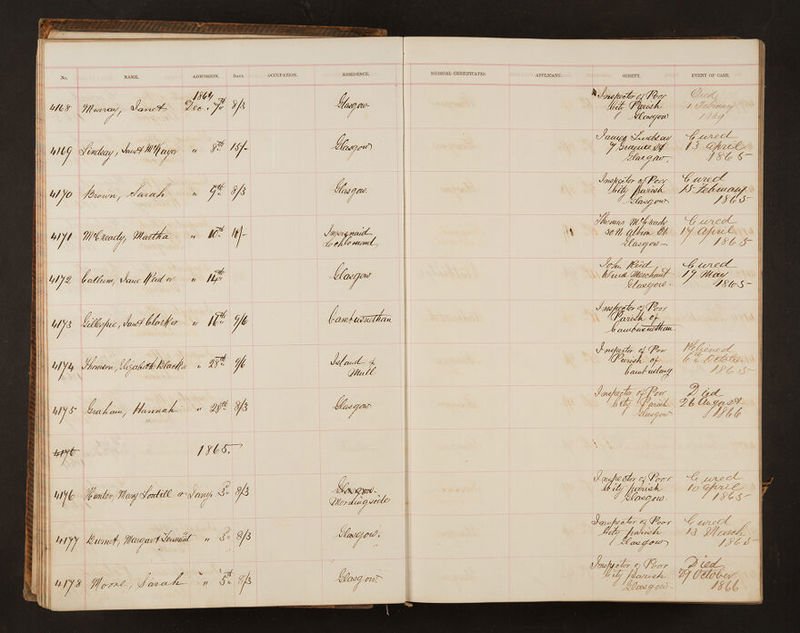 No. NAME. ADMISSION. Rate. OCCUPATION. RESIDENCE. MEDICAL CERTIFICATES. APPLICANT. SURETY. EVENT OF CASE.
1864
4168 Murray, Janet Dec. 7th 8/3 Glasgow Inspector of Poor Died
City Parish
Glasgow
4169 Lindsay, Janet " 8th 15/- Glasgow James Lindsay Cured
7 St 13 April
Glasgow 1865
4170 Brown, Sarah " 9th 8/3 Glasgow Inspector of Poor Cured
City Parish 15 February
Glasgow 1865
4171 McCready, Martha " 10th Thomas McCready Cured
30 Albion St 17 April
Glasgow 1865
4172 Callum, Jane Reid or " 14th Glasgow John Reid Cured
Merchant 17 May
Glasgow 1865
4173 Gillespie, Janet Clark or " 9/6 Cambusnethan Inspector of Poor
Parish of
Cambusnethan
4174 Thomson, Elizabeth " 28th 9/6 Island of Inspector of Poor Relieved
Mull Parish of 6th October
1865
4175 Graham, Hannah " 29th 8/3 Glasgow Inspector of Poor Died
City Parish 26 August
Glasgow 1866
4176 1865
4176 Mary or Jany 8/3 Glasgow Inspector of Poor Cured
Morningside City Parish 10 April
Glasgow 1865
4177 Burnet, Margaret " 8/3 Glasgow Inspector of Poor Cured
City Parish 13 March
Glasgow 1865
4178 Moore, Sarah " 5th 8/3 Glasgow Inspector of Poor Died
City Parish 29 October
Glasgow 1866